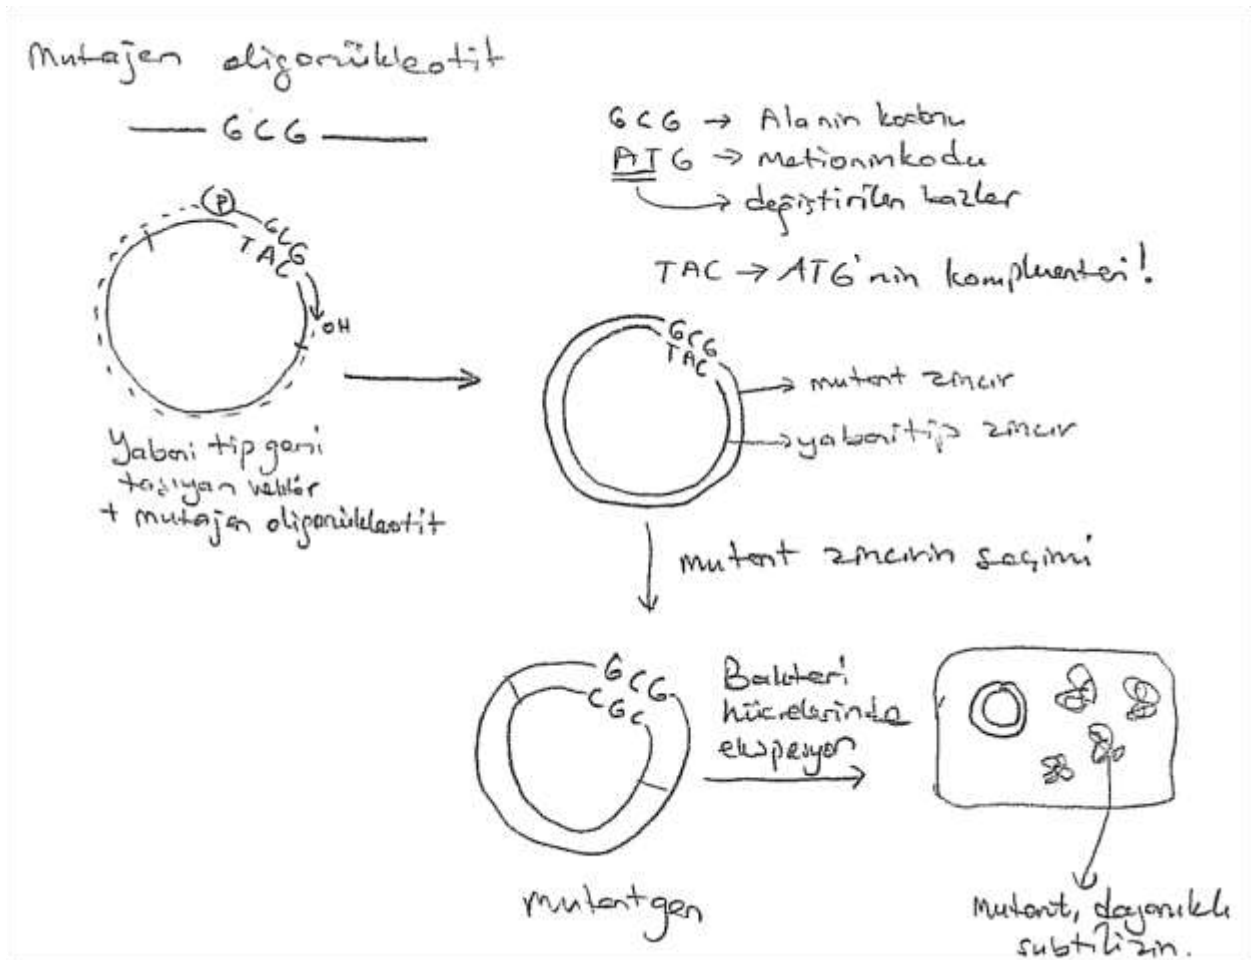 Mutajen oligonükleotit
GCG
GCG → Alanin kodonu
ATG → metionin kodu
→ değiştirilen bazlar
TAC → ATG'nin komplementeri!
P
GCG
TAC
OH
Yabani tip geni
taşıyan vektör
+ mutajen oligonükleotit
GCG
TAC
→ mutant zincir
→ yabani tip zincir
mutant zincirin seçimi
GCG
CGC
mutant gen
Bakteri
hücrelerinde
ekspresyon
Mutant, dayanıklı
subtilizin.